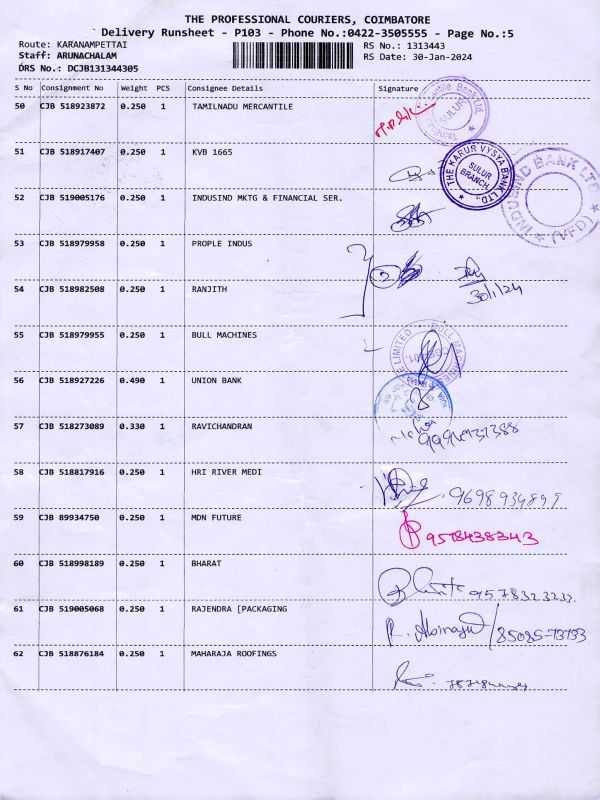 THE PROFESSIONAL COURIERS, COIMBATORE
Delivery Runsheet - P103 - Phone No.:0422-3505555 - Page No.:5
Route: KARANAMPETTAI RS No.: 1313443
Staff: ARUNACHALAM RS Date: 30-Jan-2024
DRS No.: DCJB131344305
S No Consignment No Weight PCS Consignee Details Signature
50 CJB 518923872 0.250 1 TAMILNADU MERCANTILE
SULUR
51 CJB 518917407 0.250 1 KVB 1665
THE KARUR VYSYA BANK LTD.
SULUR BRANCH
52 CJB 519005176 0.250 1 INDUSIND MKTG & FINANCIAL SER.
INDUSIND BANK LTD
(VFD)
53 CJB 518979958 0.250 1 PROPLE INDUS
54 CJB 518982508 0.250 1 RANJITH
30/1/24
55 CJB 518979955 0.250 1 BULL MACHINES
BULL MACHINES
LIMITED
56 CJB 518927226 0.490 1 UNION BANK
57 CJB 518273089 0.330 1 RAVICHANDRAN
58 CJB 518817916 0.250 1 HRI RIVER MEDI
9698934899
59 CJB 89934750 0.250 1 MDN FUTURE
9578438343
60 CJB 518998189 0.250 1 BHARAT
9578323233
61 CJB 519005068 0.250 1 RAJENDRA [PACKAGING
85085-73733
62 CJB 518876184 0.250 1 MAHARAJA ROOFINGS